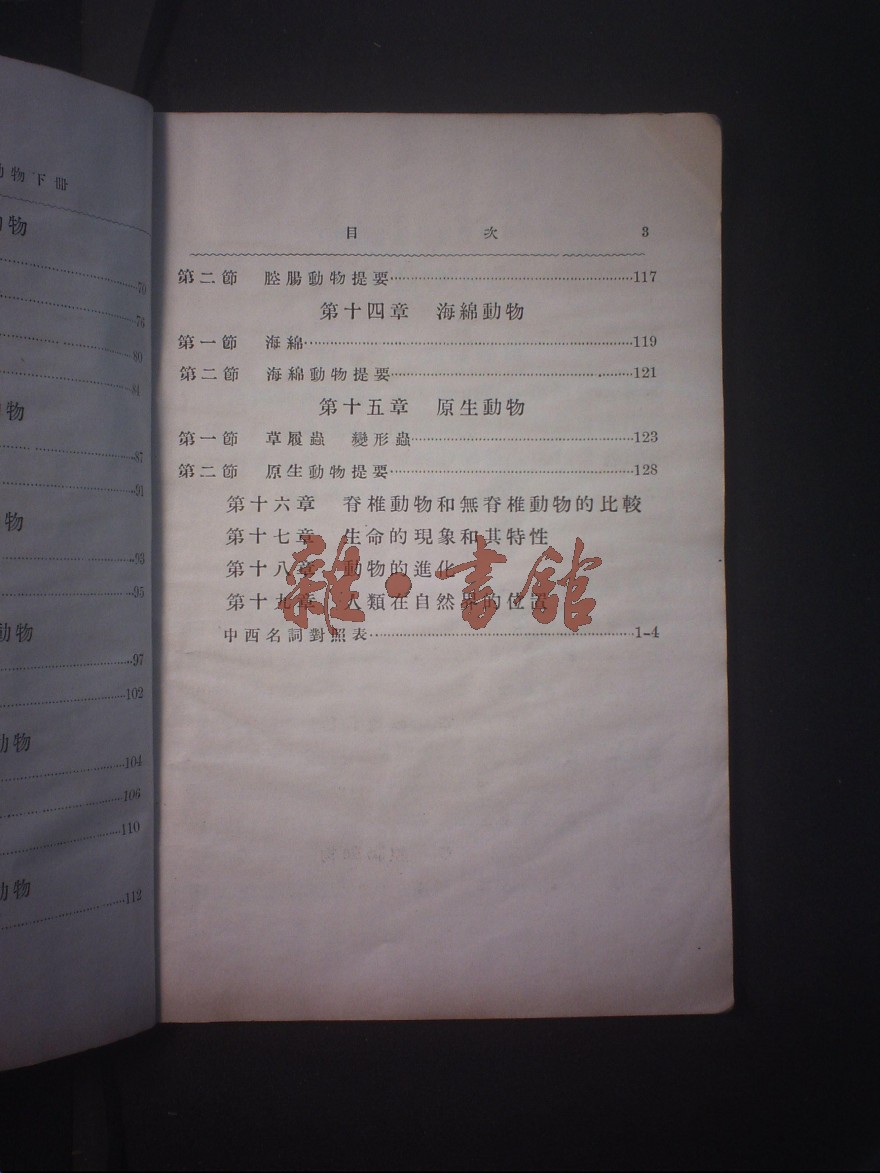 動物下冊
動物
70
76
80
81
動物
87
91
動物
93
95
動物
97
102
動物
104
106
110
動物
112
目次 3
第二節 腔腸動物提要 117
第十四章 海綿動物
第一節 海綿 119
第二節 海綿動物提要 121
第十五章 原生動物
第一節 草履蟲 變形蟲 123
第二節 原生動物提要 128
第十六章 脊椎動物和無脊椎動物的比較
第十七章 生命的現象和其特性
第十八章 動物的進化
第十九章 人類在自然界的位置
中西名詞對照表 1-4
雜·書館